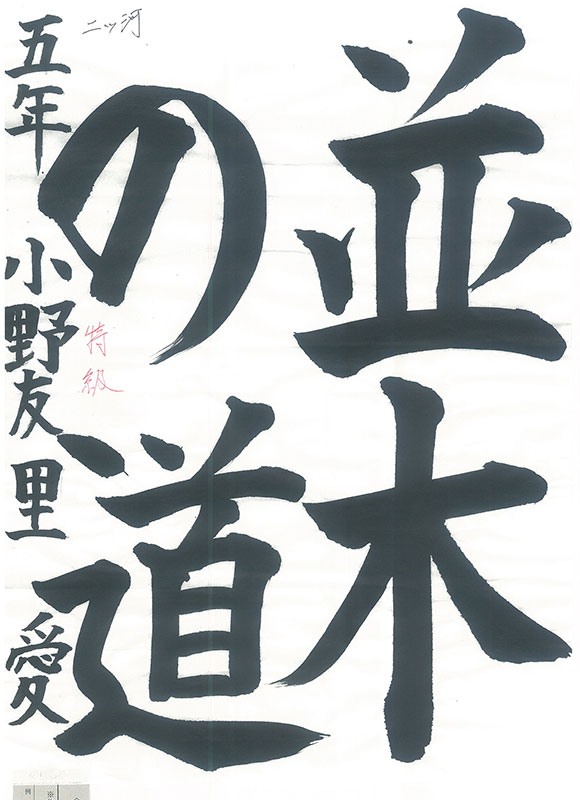 並木
の道
ニッ河
五年 小野友里愛
特級